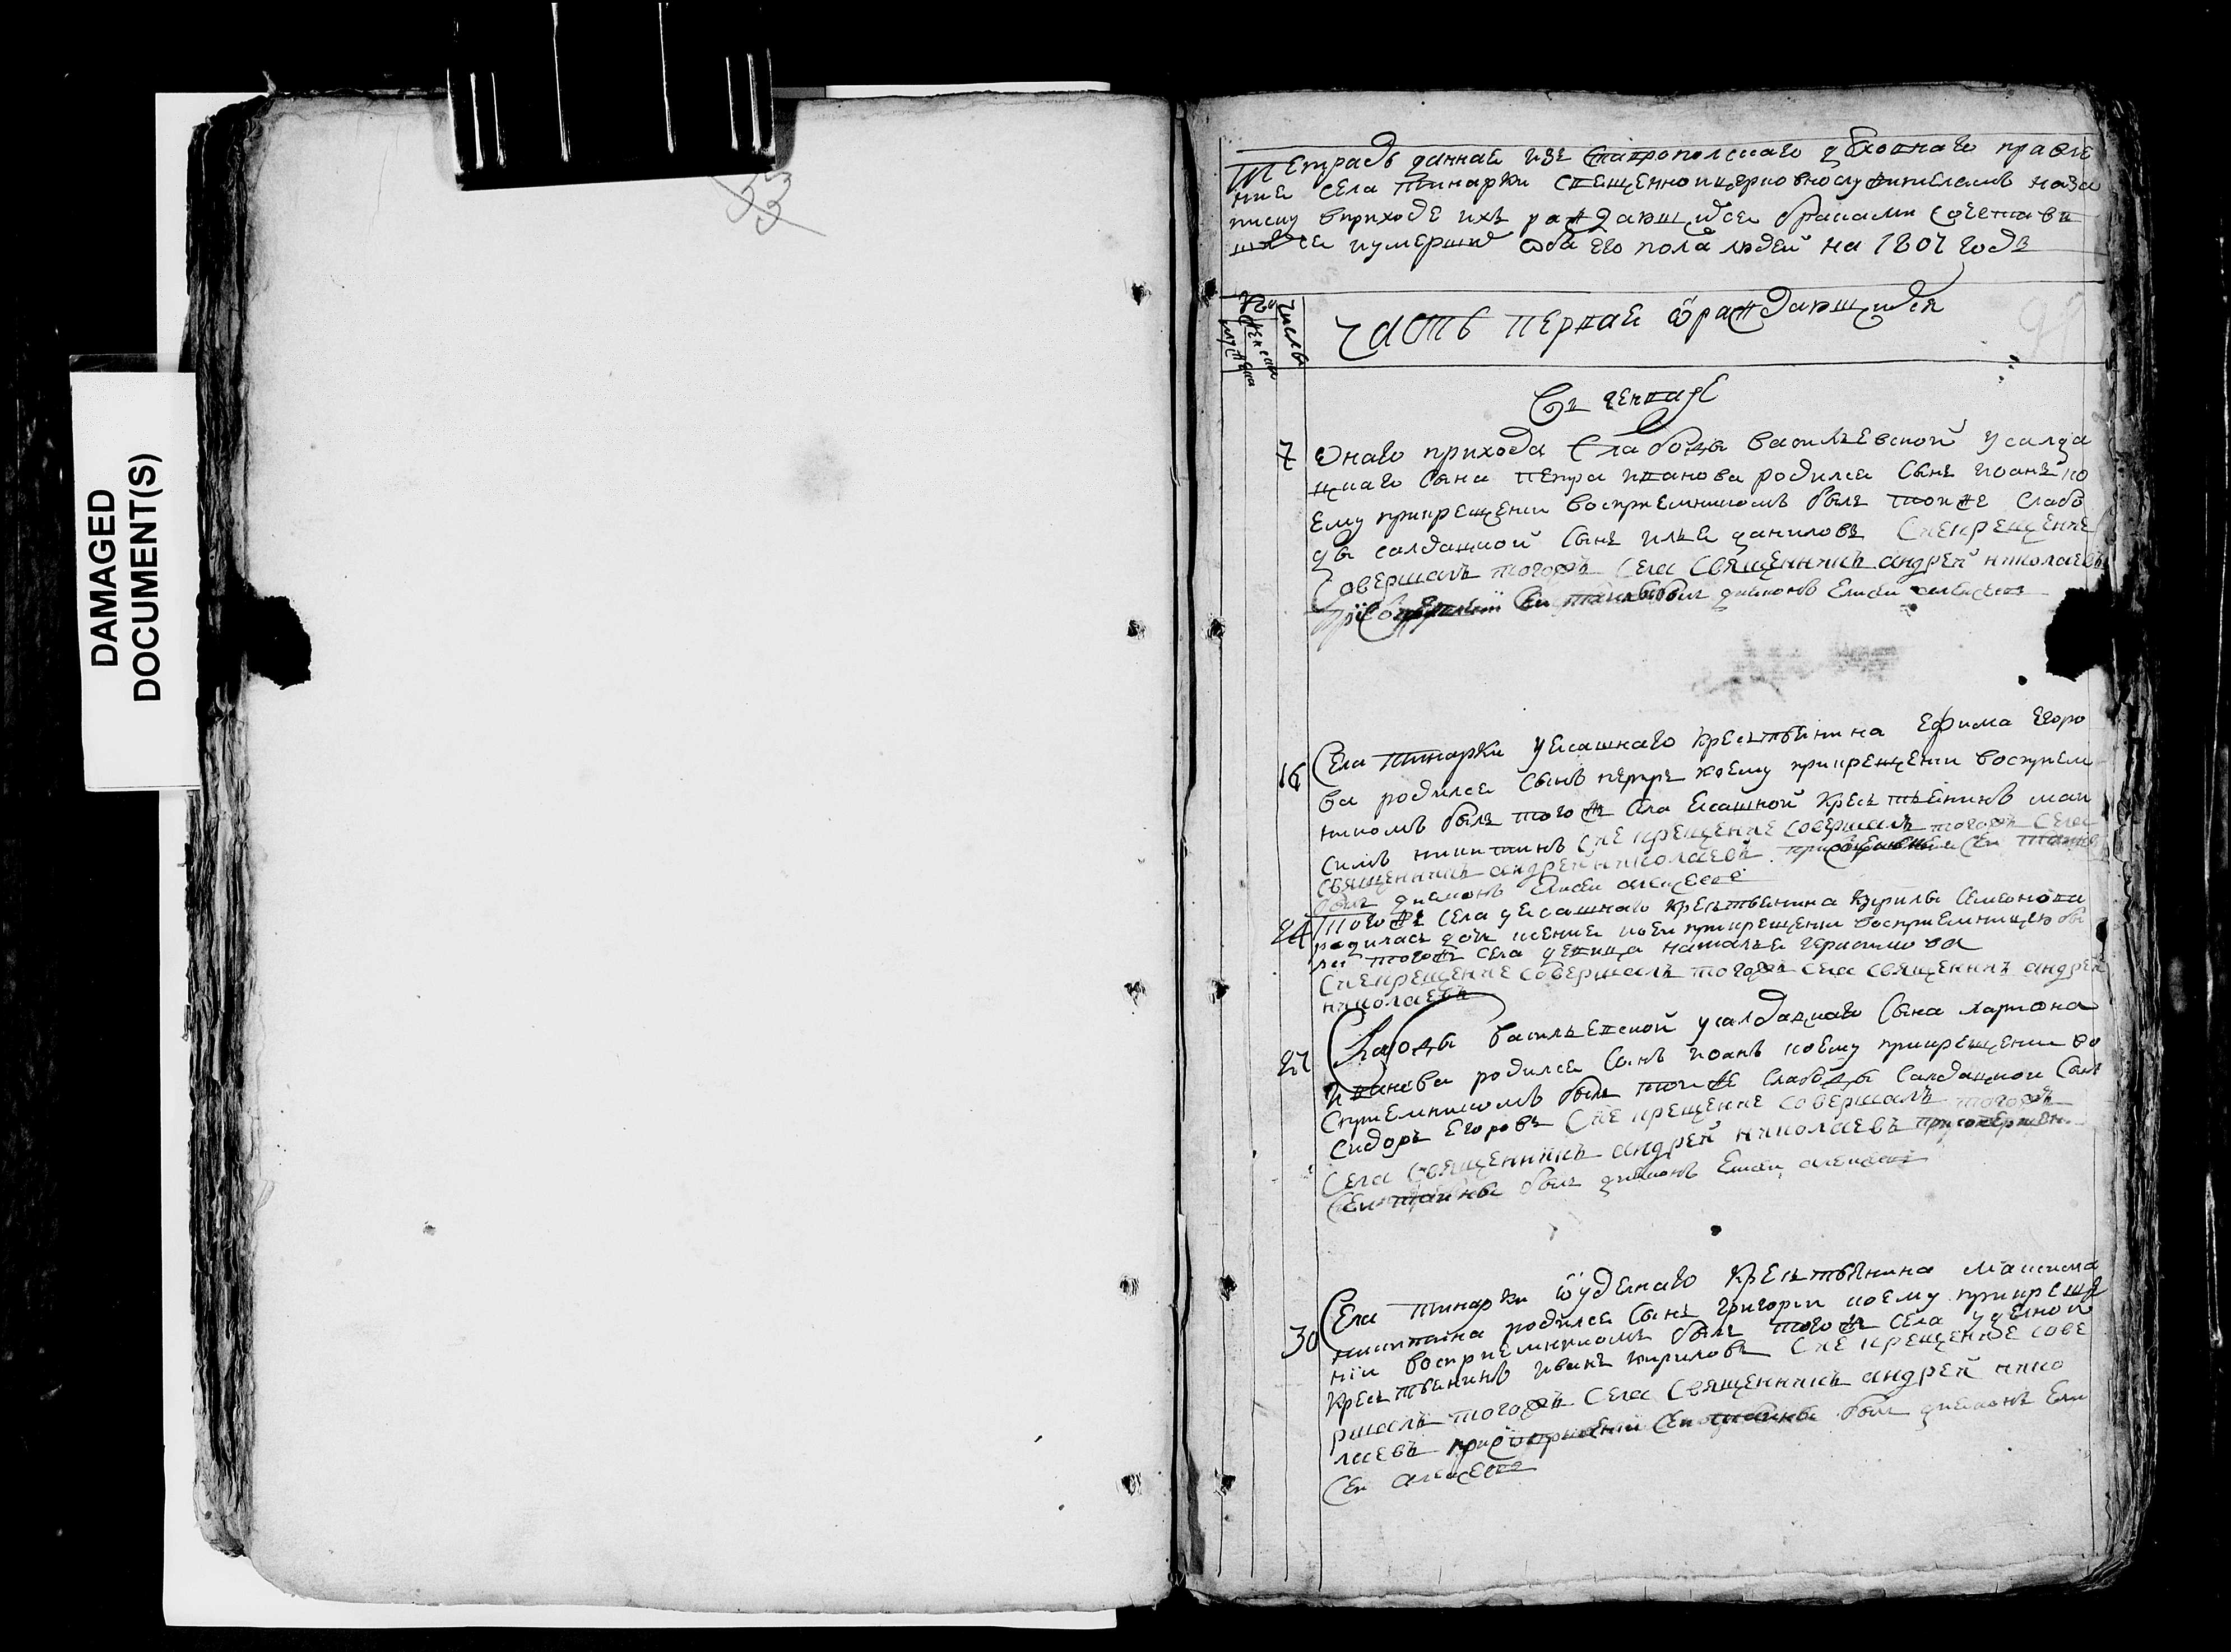 DAMAGED
DOCUMENT(S)
53
Тетрадь данная изъ Ставрополскаго духовнаго правле
ния села Тинарки священноицерковнослужителямъ наза
писку вприходе ихъ раждающихся браками сочетавъ
шихся иумершихъ обоего пола людей на 1801 годъ
числа
Часть первая ѿраждающихся
Въ генваре
7 Онаго прихода Слабоды васильевской усалда
цкаго сына петра иванова родился сынъ иоанъ ко
ему прикрещени восприемникомъ былъ тоиже слабо
ды салдацкой сынъ илья даниловъ Сиекрещение
совершалъ тогожъ села священникъ андрей николаевъ
при были диаконъ Елисеи алексеевъ
16 Села тинарки уясашнаго крестьянина ефима егоро
ва родился сынъ петръ коему прикрещени восприем
никомъ былъ тогожъ села ясашной крестьянинъ мак
симъ никитинъ Сие крещение совершалъ тогожъ села
священникъ андрей николаевъ при сеи
былъ диаконъ Елисеи алексеевъ
24 Тогожъ села уясашнаго крестьянина кирилы семионова
родилась дочь ксения коеи прикрещени восприемницею бы
ла тогожъ села девица наталья герасимова
Сиекрещение совершалъ тогожъ села священикъ андрей
николаевъ
27 Слабоды васильевской усалдацкаго сына лариона
иванова родился сынъ иоанъ коему прикрещени во
сприемникомъ былъ тоиже слабоды салдацкой сынъ
сидоръ егоровъ Сие крещение совершалъ тогожъ
села священникъ андрей николаевъ присовершени
сеи таины былъ диаконъ Елисеи алексеевъ
30 Села тинарки ѿуделнаго крестьянина максима
никитина родился сынъ григореи коему прикреще
нии восприемникомъ былъ тогожъ села уделной
крестьянинъ иванъ кириловъ Сие крещение сове
ршалъ тогожъ села священникъ андрей нико
лаевъ присовершении сеи таины былъ диаконъ Ели
сеи алексеевъ